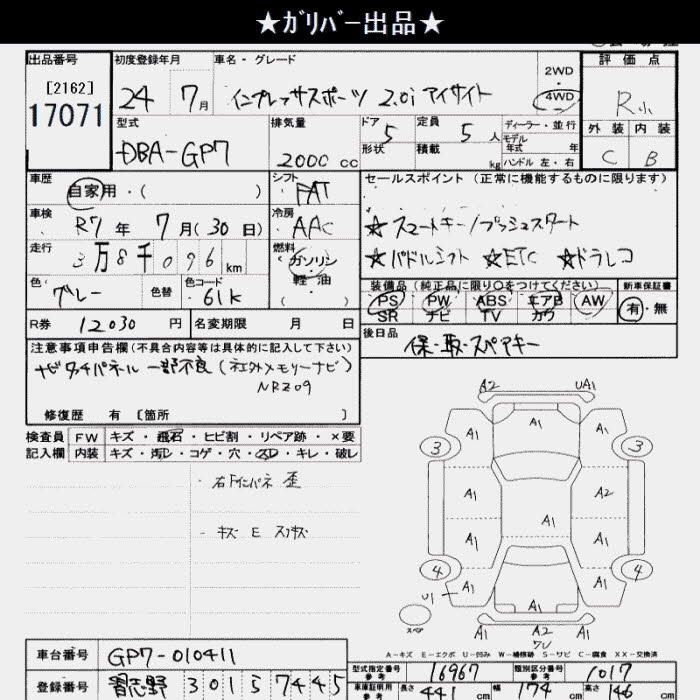 ★ｶﾞﾘﾊﾞｰ出品★
出品番号
[2162]
17071
初度登録年月
24 7月
車名・グレード
インプレッサスポーツ 2.0i アイサイト
2WD
・
4WD
評価点
R小
外装 内装
C B
型式
DBA-GP7
排気量
2000 cc
ドア
5
形状
定員
5人
積載
kg
ディーラー・並行
モデル
年式 年
ハンドル 左・右
車歴
自家用・( )
シフト
FAT
車検
R7年 7月(30日)
冷房
AAC
走行
3万8千096km
燃料
ガソリン
軽・油
色
グレー
色替
色コード
61K
R券 12030円
名変期限 月 日
セールスポイント (正常に機能するものに限ります)
★スマートキー/プッシュスタート
★パドルシフト ★ETC ★ドラレコ
装備品(純正品に限り〇をつけてください)
PS PW ABS エアB AW
SR ナビ TV カワ
新車保証書
有・無
後日品
保・取・スペアキー
注意事項申告欄(不具合内容等は具体的に記入して下さい)
ナビタッチパネル 一部不良(社外メモリーナビ)
NRZ09
修復歴 有[箇所 ]
検査員 FW キズ・飛石・ヒビ割・リペア跡・×要
記入欄 内装 キズ・汚レ・コゲ・穴・スレ・キレ・破レ
・右Fインパネ 歪
・キズ E スリキズ
A2 UA1
A1 A1 A1
3 3
A1 A2
A1
A1 A1
4 4
A1 A1 A1
U1
スペア
A1 A2 A1
A-キズ E-エクボ U-凹み W-補修跡 S-サビ C-腐食 XX-交換済
車台番号 GP7-010411
登録番号 習志野 301 5 7445
型式指定番号
参考
16967
類別区分番号
参考
1017
車庫証明用
参考
長さ 441 cm 幅 174 cm 高さ 146 cm